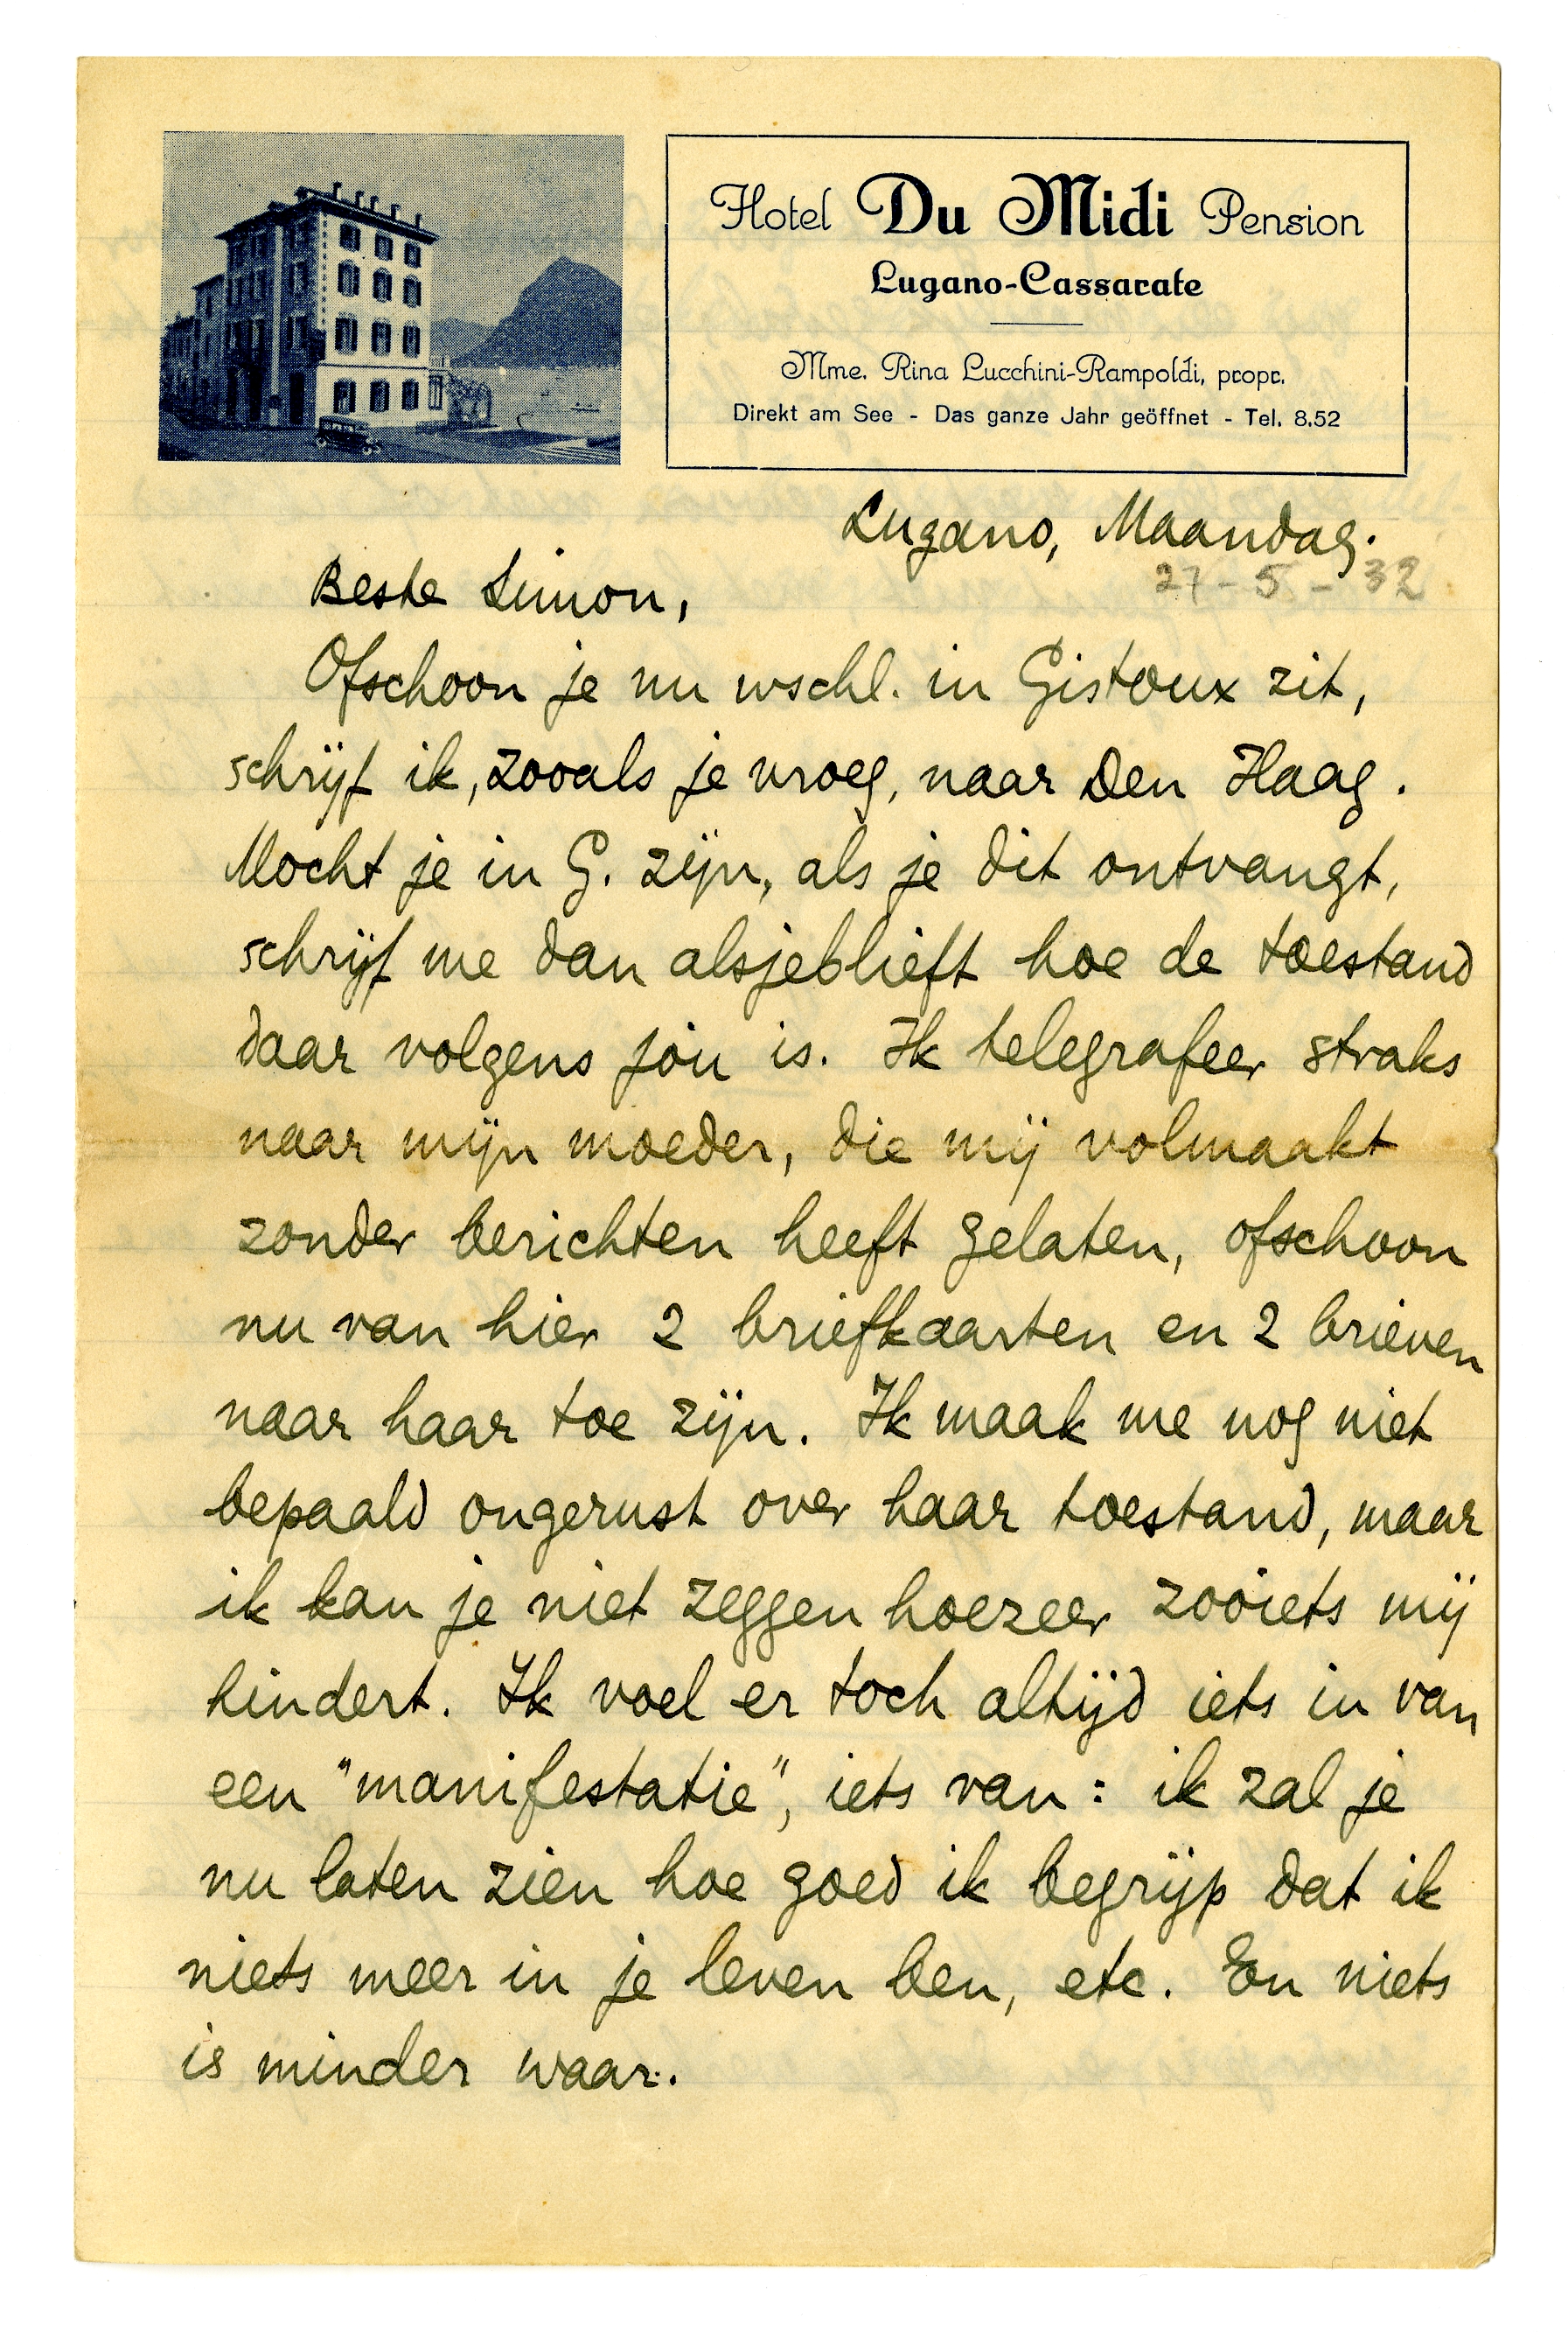 Hotel Du Midi Pension
Lugano-Cassarate
Mme. Rina Lucchini-Rampoldi, propr.
Direkt am See - Das ganze Jahr geöffnet - Tel. 8.52
Lugano, Maandag.
27-5-32
Beste Simon,
Ofschoon je nu wschl. in Gistoux zit,
schrijf ik, zooals je vroeg, naar Den Haag.
Mocht je in G. zijn, als je dit ontvangt,
schrijf me dan alsjeblieft hoe de toestand
daar volgens jòu is. Ik telegrafeer straks
naar mijn moeder, die mij volmaakt
zonder berichten heeft gelaten, ofschoon
nu van hier 2 briefkaarten en 2 brieven
naar haar toe zijn. Ik maak me nog niet
bepaald ongerust over haar toestand, maar
ik kan je niet zeggen hoezeer zooiets mij
hindert. Ik voel er toch altijd iets in van
een "manifestatie", iets van: ik zal je
nu laten zien hoe goed ik begrijp dat ik
niets meer in je leven ben, etc. En niets
is minder waar.